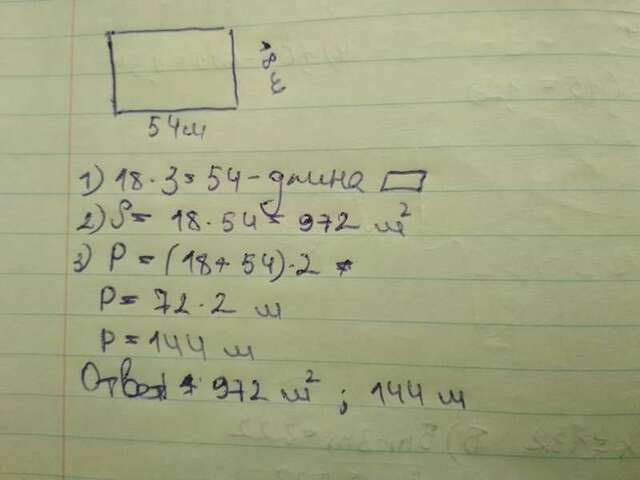 18 м
54 м
1) 18 · 3 = 54 - длина
2) S = 18 · 54 = 972 м²
3) P = (18 + 54) · 2
P = 72 · 2 м
P = 144 м
Ответ: 972 м² ; 144 м